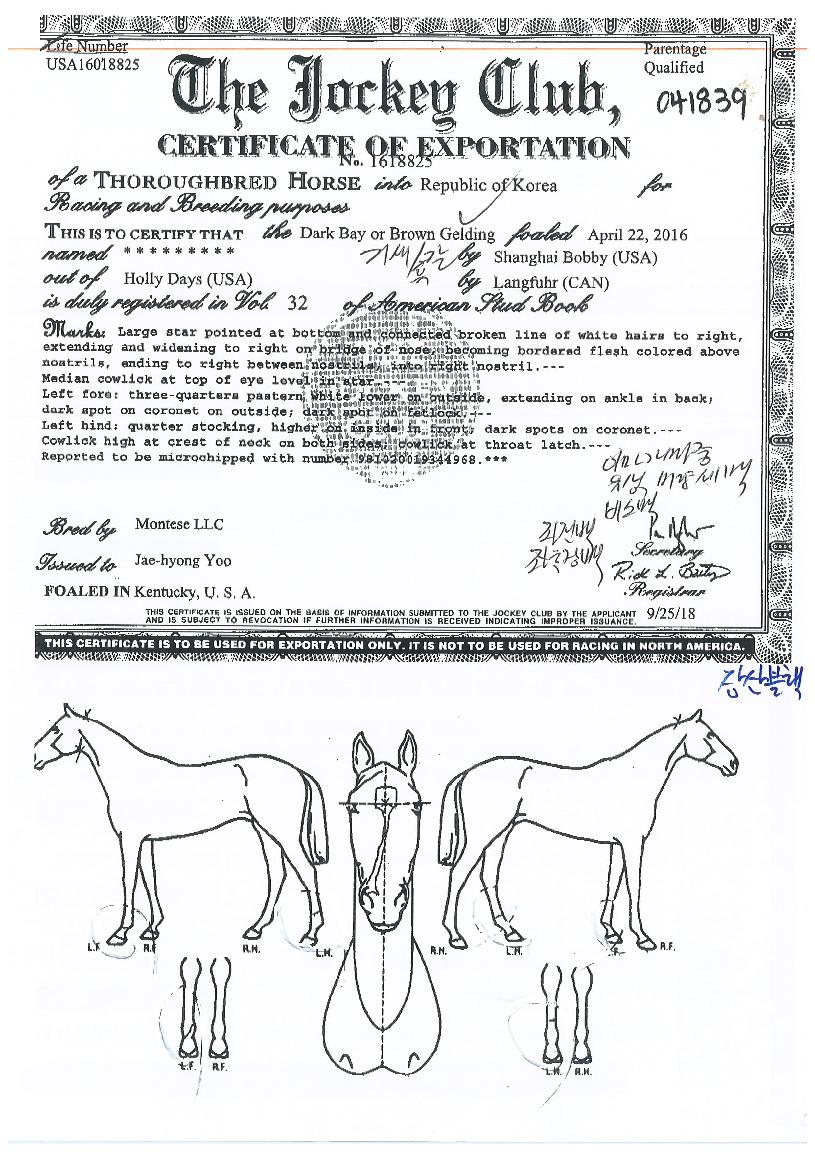 Life Number
USA16018825
Parentage
Qualified
041839
The Jockey Club,
CERTIFICATE OF EXPORTATION
No. 1618825
of a THOROUGHBRED HORSE into Republic of Korea for
Racing and Breeding purposes
THIS IS TO CERTIFY THAT the Dark Bay or Brown Gelding foaled April 22, 2016
named * * * * * * * * * by Shanghai Bobby (USA)
out of Holly Days (USA) by Langfuhr (CAN)
is duly registered in Vol. 32 of American Stud Book
Marks: Large star pointed at bottom and connected broken line of white hairs to right,
extending and widening to right on bridge of nose, becoming bordered flesh colored above
nostrils, ending to right between nostrils, into right nostril.---
Median cowlick at top of eye level in star.---
Left fore: three-quarters pastern, white lower on outside, extending on ankle in back;
dark spot on coronet on outside; dark spot on fetlock.---
Left hind: quarter stocking, higher on inside in front; dark spots on coronet.---
Cowlick high at crest of neck on both sides, cowlick at throat latch.---
Reported to be microchipped with number 981020019344968.***
Bred by Montese LLC
Issued to Jae-hyong Yoo
Secretary
Registrar
FOALED IN Kentucky, U. S. A.
THIS CERTIFICATE IS ISSUED ON THE BASIS OF INFORMATION SUBMITTED TO THE JOCKEY CLUB BY THE APPLICANT
AND IS SUBJECT TO REVOCATION IF FURTHER INFORMATION IS RECEIVED INDICATING IMPROPER ISSUANCE.
9/25/18
THIS CERTIFICATE IS TO BE USED FOR EXPORTATION ONLY. IT IS NOT TO BE USED FOR RACING IN NORTH AMERICA.
L.F. R.F. R.H. L.H. R.H. L.H. L.F. R.F.
L.F. R.F. L.H. R.H.